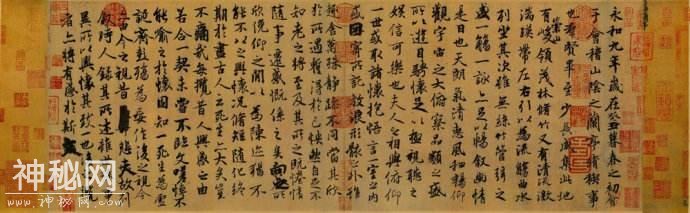 永和九年歲在癸丑暮春之初會
于會稽山陰之蘭亭脩禊事
也羣賢畢至少長咸集此地
有崇山峻領茂林脩竹又有清流激
湍暎帶左右引以為流觴曲水
列坐其次雖無絲竹管弦之
盛一觴一詠亦足以暢敘幽情
是日也天朗氣清惠風和暢仰
觀宇宙之大俯察品類之盛
所以遊目騁懷足以極視聽之
娛信可樂也夫人之相與俯仰
一世或取諸懷抱悟言一室之內
或因寄所託放浪形骸之外雖
趣舍萬殊靜躁不同當其欣
於所遇蹔得於己快然自足不
知老之將至及其所之既惓情
隨事遷感慨係之矣向之所
欣俛仰之間以為陳迹猶不
能不以之興懷況脩短隨化終
期於盡古人云死生亦大矣豈
不痛哉每攬昔人興感之由
若合一契未嘗不臨文嗟悼不
能喻之於懷固知一死生為虛
誕齊彭殤為妄作後之視今
亦由今之視昔悲夫故列
敘時人錄其所述雖世殊事
異所以興懷其致一也後之攬
者亦將有感於斯文
神秘网
www.神秘网.com